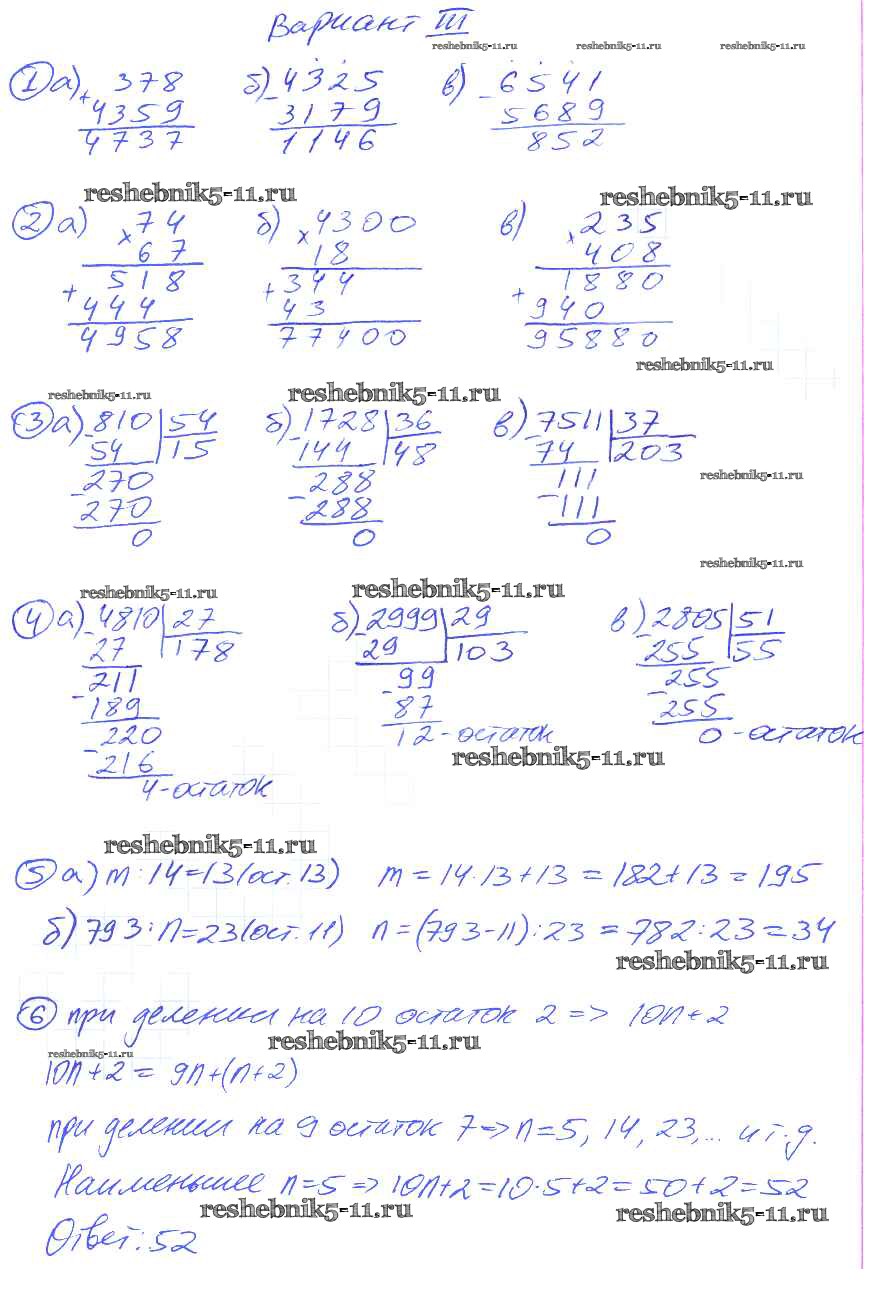 Вариант III
reshebnik5-11.ru reshebnik5-11.ru reshebnik5-11.ru
1 а) + 378 б) - 4325 в) - 6541
4359 3179 5689
4737 1146 852
reshebnik5-11.ru reshebnik5-11.ru
2 а) × 74 б) × 4300 в) × 235
67 18 408
+ 518 + 344 + 1880
444 43 940
4958 77400 95880
reshebnik5-11.ru
reshebnik5-11.ru reshebnik5-11.ru
3 а) - 810 | 54 б) - 1728 | 36 в) - 7511 | 37
54 | 15 144 | 48 74 | 203
- 270 - 288 - 111
270 288 111
0 0 0
reshebnik5-11.ru
reshebnik5-11.ru
reshebnik5-11.ru reshebnik5-11.ru
4 а) - 4810 | 27 б) - 2999 | 29 в) - 2805 | 51
27 | 178 29 | 103 255 | 55
- 211 - 99 - 255
189 87 255
- 220 12 - остаток 0 - остаток
216
4 - остаток
reshebnik5-11.ru
reshebnik5-11.ru
5 а) m : 14 = 13 (ост. 13) m = 14·13 + 13 = 182 + 13 = 195
б) 793 : n = 23 (ост. 11) n = (793 - 11) : 23 = 782 : 23 = 34
reshebnik5-11.ru
6 при делении на 10 остаток 2 => 10n + 2
reshebnik5-11.ru
reshebnik5-11.ru
10n + 2 = 9n + (n + 2)
при делении на 9 остаток 7 => n = 5, 14, 23, ... и т.д.
Наименьшее n = 5 => 10n + 2 = 10·5 + 2 = 50 + 2 = 52
reshebnik5-11.ru reshebnik5-11.ru
Ответ: 52